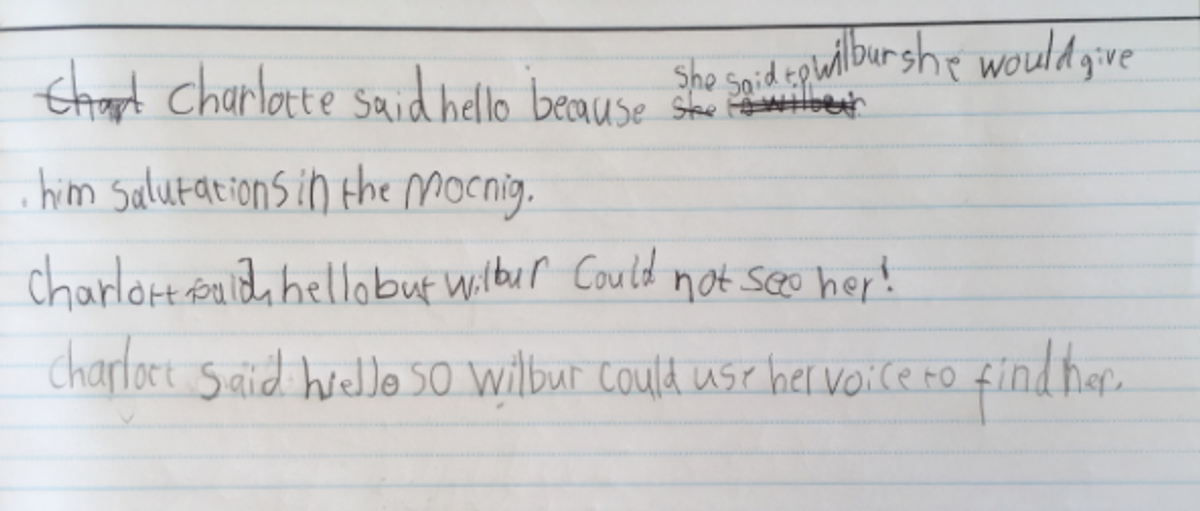 Charlotte said hello because she said to Wilbur she would give
him salutations in the mocnig.
Charlott said hello but wilbur Could not see her!
Charlott said hello so wilbur could use her voice to find her.